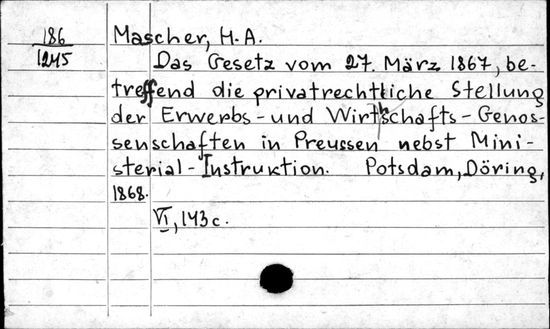 186
1245
Mascher, H.A.
Das Gesetz vom 27. März 1867, be-
treffend die privatrechtliche Stellung
der Erwerbs- und Wirthschafts-Genos-
senschaften in Preussen nebst Mini-
sterial-Instruktion. Potsdam, Döring,
1868.
VI, 143 c.